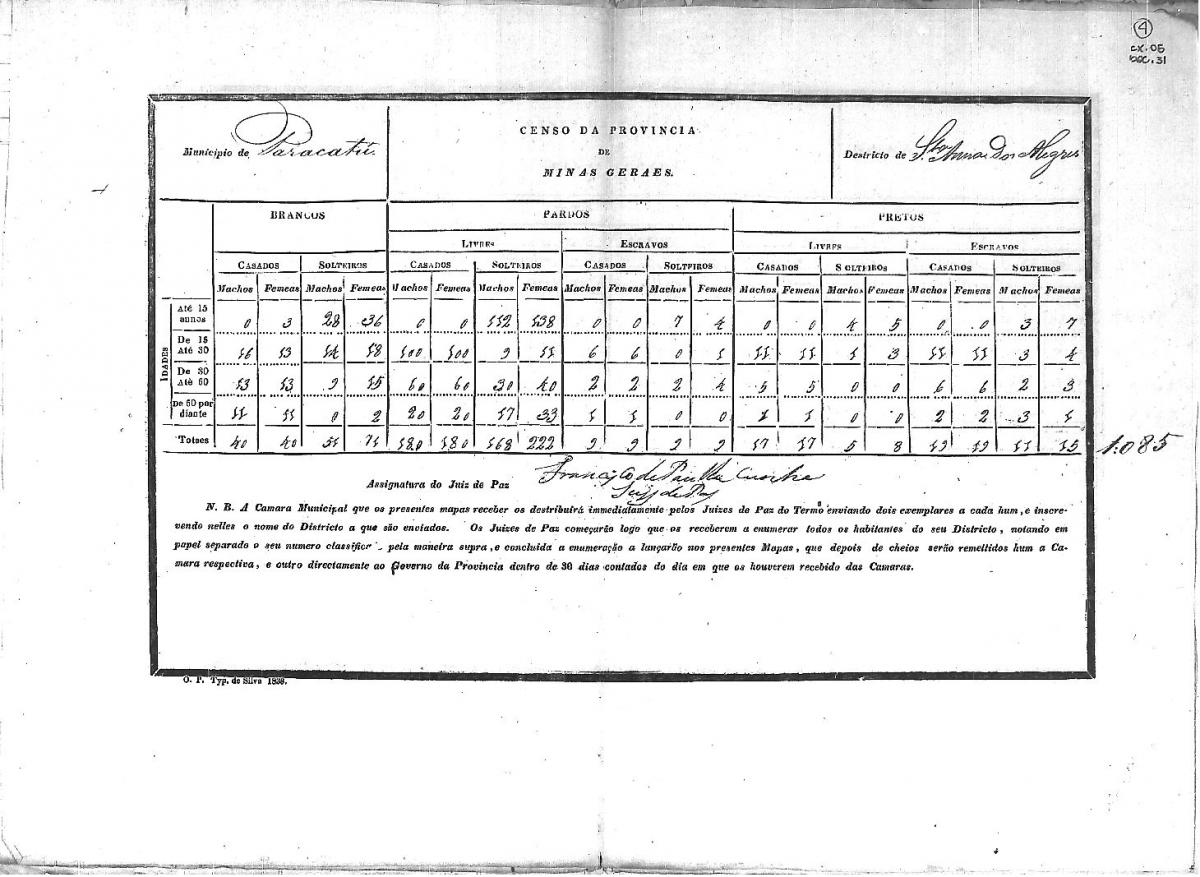 4
cx. 05
DOC. 31
Municipio de Paracatú
CENSO DA PROVINCIA
DE
MINAS GERAES.
Destricto de S.ta Anna Dos Alegres
BRANCOS PARDOS PRETOS
LIVRES ESCRAVOS LIVRES ESCRAVOS
CASADOS SOLTEIROS CASADOS SOLTEIROS CASADOS SOLTEIROS CASADOS SOLTEIROS CASADOS SOLTEIROS
Machos Femeas Machos Femeas Machos Femeas Machos Femeas Machos Femeas Machos Femeas Machos Femeas Machos Femeas Machos Femeas Machos Femeas
IDADES
Até 15 annos 0 3 28 36 0 0 112 138 0 0 7 4 0 0 4 5 0 0 3 7
De 15 Até 30 16 13 14 18 100 100 9 11 6 6 0 1 11 11 1 3 11 11 3 4
De 30 Até 60 13 13 9 15 60 60 30 40 2 2 2 4 5 5 0 0 6 6 2 3
De 60 por diante 11 11 0 2 20 20 17 33 1 1 0 0 1 1 0 0 2 2 3 1
Totaes 40 40 51 71 180 180 168 222 9 9 9 9 17 17 5 8 19 19 11 15 1.085
Assignatura do Juiz de Paz Francisco de Paulla Cunha
Juiz de Paz
N. B. A Camara Municipal que os presentes mapas receber os destribuirá immediatamente pelos Juizes de Paz do Termo enviando dois exemplares a cada hum, e inscre-
vendo nelles o nome do Districto a que são enciados. Os Juizes de Paz começarão logo que os receberem a enumerar todos os habitantes do seu Districto, notando em
papel separado o seu numero classifica pela maneira supra, e concluida a enumeração a lançarão nos presentes Mapas, que depois de cheios serão remettidos hum a Ca-
mara respectiva, e outro directamente ao Governo da Provincia dentro de 30 dias contados do dia em que os houverem recebido das Camaras.
O. P. Typ. de Silva 1838.